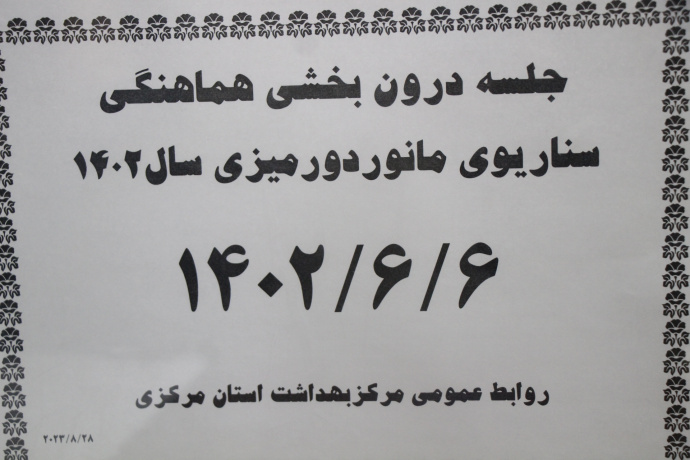 جلسه درون بخشی هماهنگی
سناریوی مانوردورمیزی سال۱۴۰۲
۱۴۰۲/۶/۶
روابط عمومی مرکزبهداشت استان مرکزی
۲۰۲۳/۸/۲۸